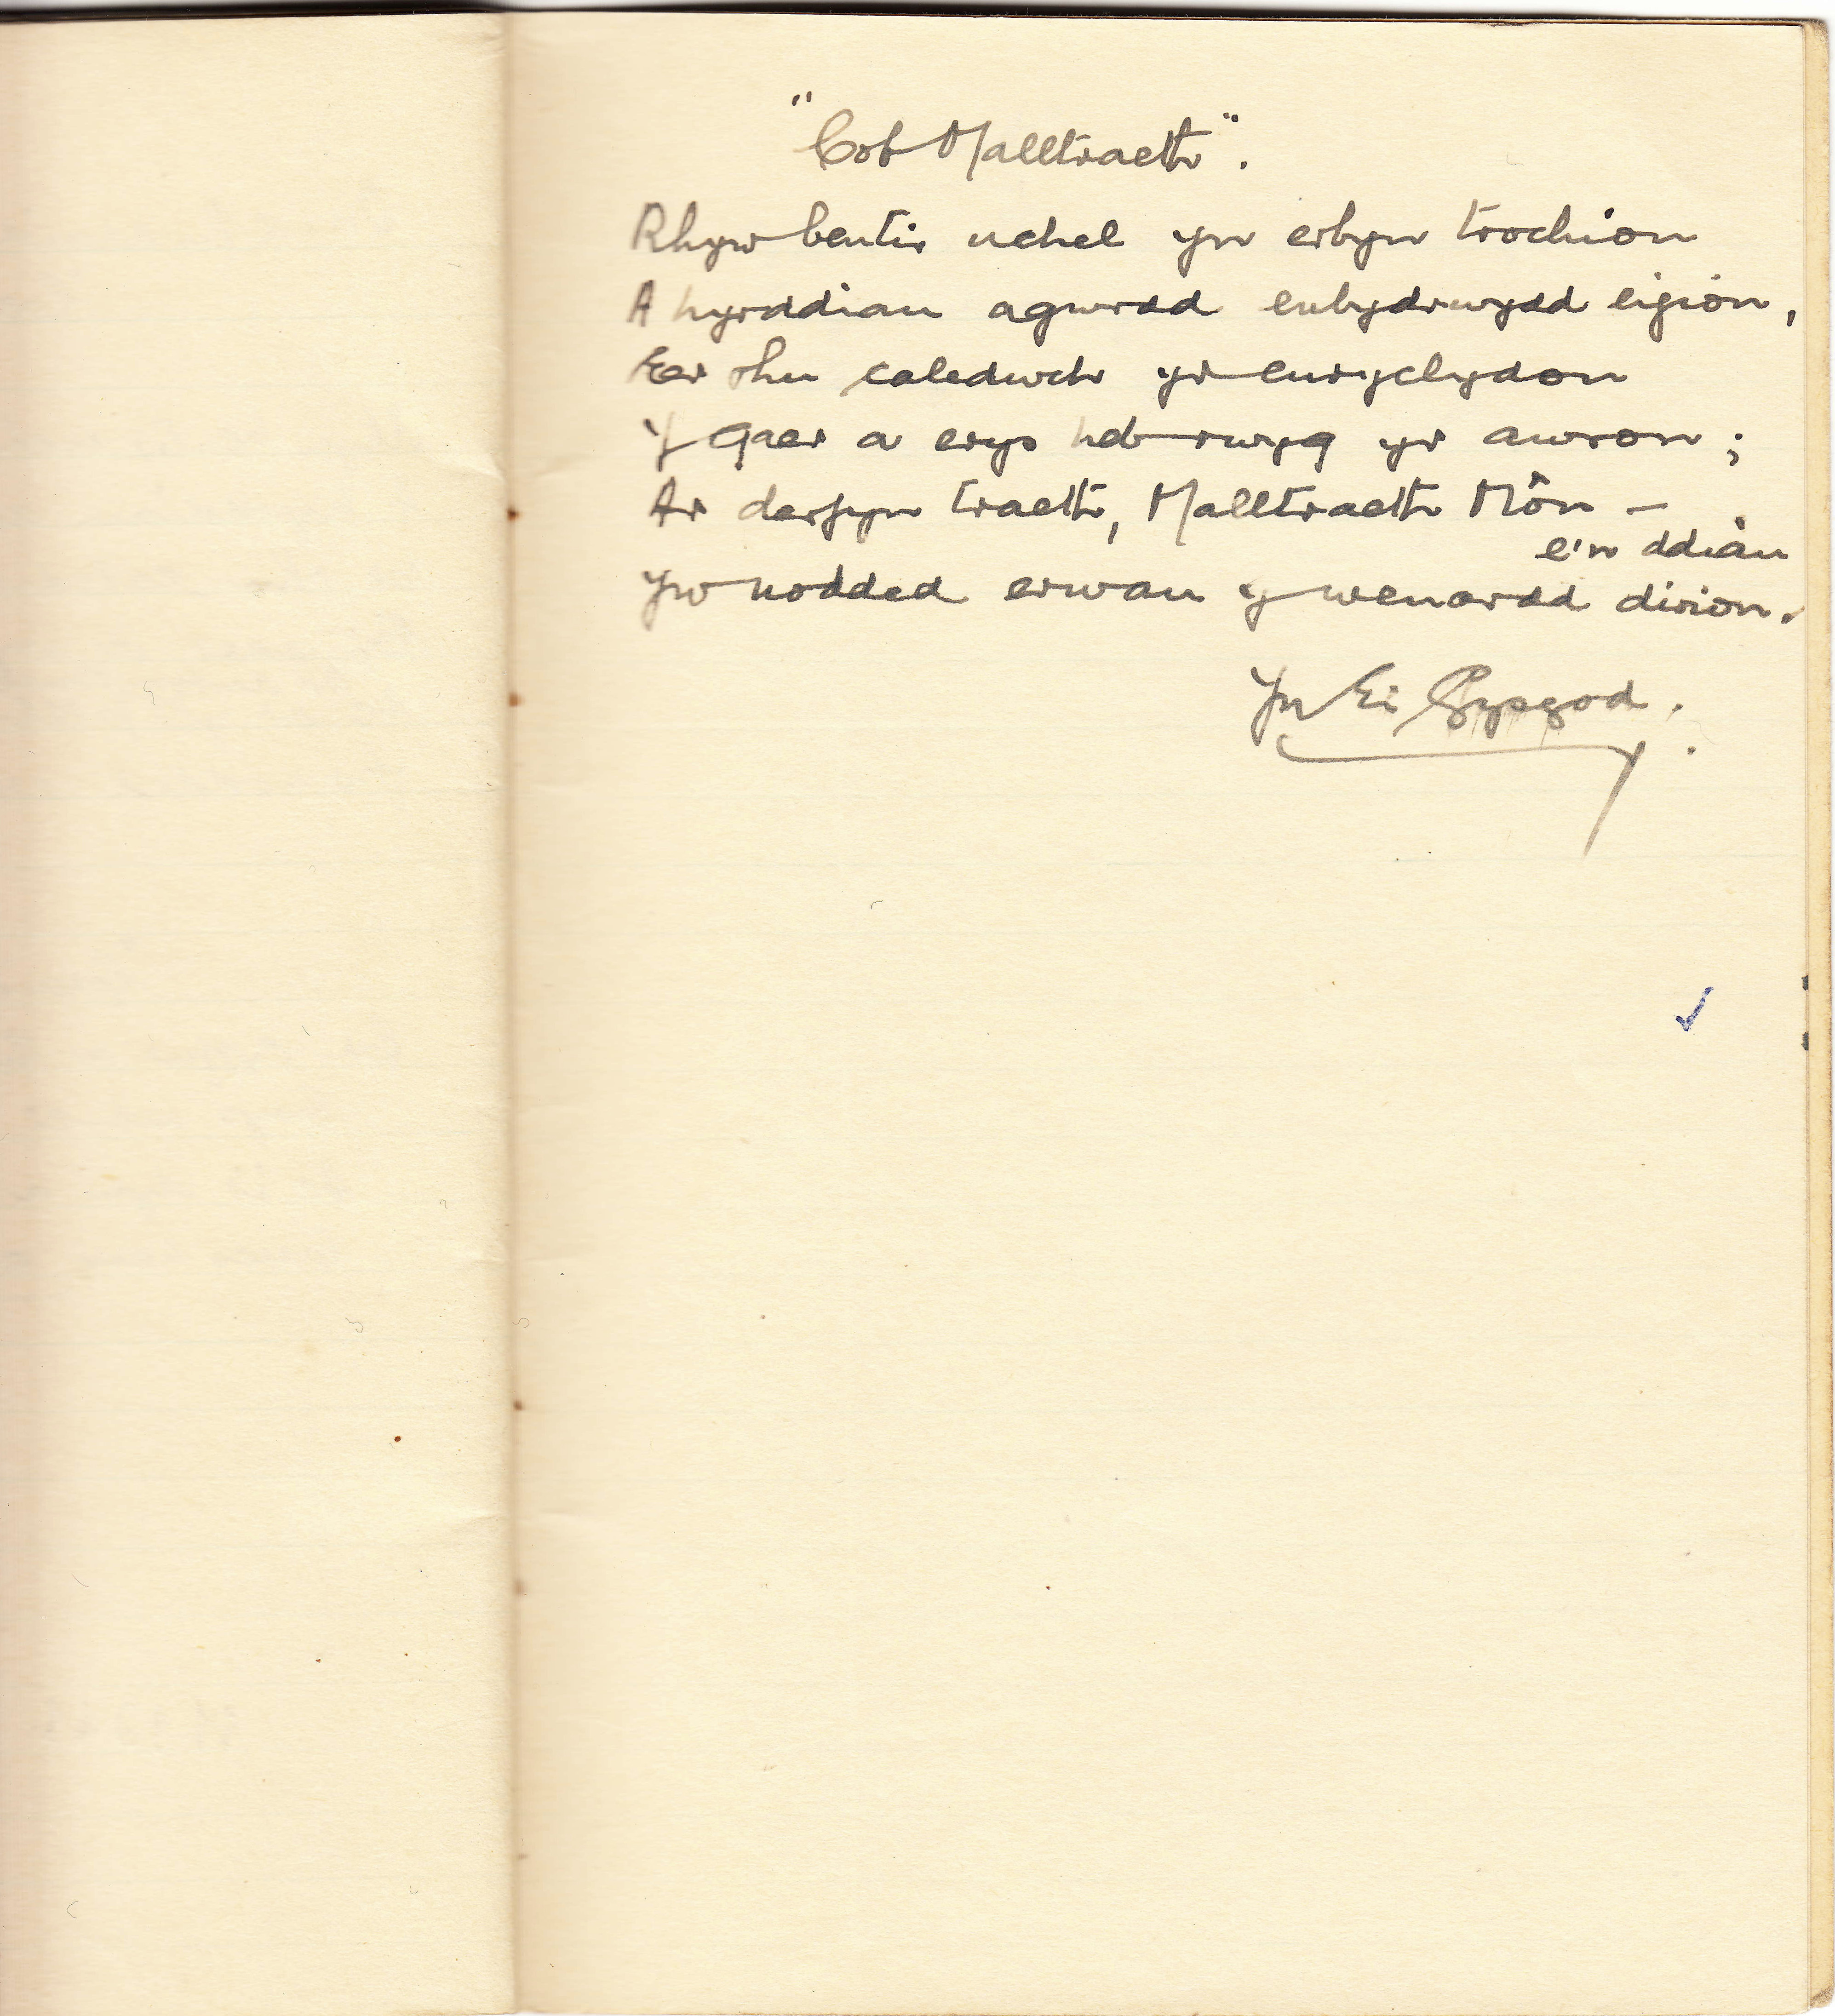 "Cob Malltraeth".
Rhyw bentir uchel yn erbyn trochion
A hyrddiau agwrdd enbydrwydd eigion,
Er rhu caledwch yr ewryclydon
Y gaer a erys heb rwyg yr awron;
Ar derfyn traeth, Malltraeth Môn –
e'n ddiau
Yw nodded erwau y wenardd dirion.
Yn Ei Gysgod.